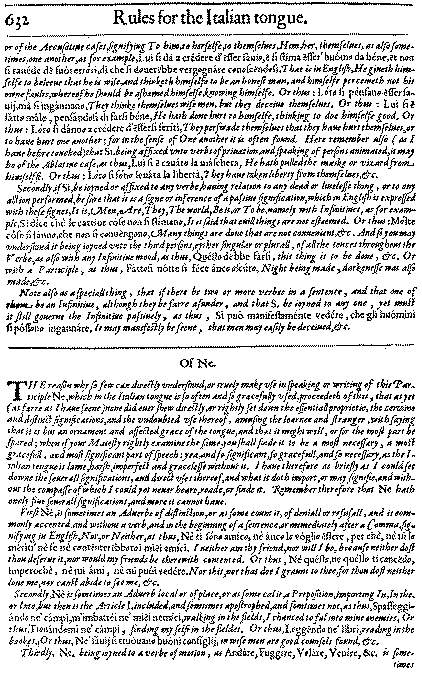 632 Rules for the Italian tongue.
or of the Accusative cases, signifying To him, to herselfe, to themselves, Hem, her, themselves, as also some-
times, one another, as for example, Lui si dà a crédere d'esser sauio, e si stima esser' buómo da béne, et non
si rauéde de suói errόri, di che si douerébbe vergognáre conoscéndosi, That is in English, He giueth him-
selfe to beleeue that he is wise, and thinketh himselfe to be an honest man, and himselfe perceiueth not his
owne faults, whereof he should be ashamed himselfe, knowing himselfe. Or thus: Lóro si pénsano esser sa-
uij, mà si ingánnano, They thinke themselues wise men, but they deceiue themselues. Or thus: Lui si è
fátto mále, pensándosi di fársi béne, He hath done hurt to himselfe, thinking to doe himselfe good. Or
thus: Lóro si dánno a crédere d'essersi feríti, They perswade themselues that they haue hurt themselues, or
to haue hurt one another; for in the sense of One another it is often found. Here remember also (as I
haue before touched) that Si, being affixed unto verbs of priuation, and speaking of persons animated, it may
be of the Ablatiue case, as thus, Lui si è cauáta la máschera, He hath pulled the maske or vizard from
himselfe. Or thus: Lóro si sóno leuáta la libertà, They haue taken liberty from themselues, &c.
Secondly, if Si, be ioyned or affixed to any verbe, hauing relation to any dead or liuelesse thing, or to any
action performed, be sure that it is a signe or inference of a passiue signification, which in English is expressed
with these signes, It is, Men, Are, They, The world, Be it or To be, namely with Infinitiues, as for exam-
ple, Si dice ché le cattíue cóse nόn si stímano, It is said that euill things are not esteemed. Or thus: Mólte
cóse si fánno, che non si conuéngono, Many things are done that are not conuenient, &c. And so you may
vnderstand it being ioyned vnto the third persons, either singular or plurall, of all the tenses throughout the
Verbe, as also with any Infinitiue mood, as thus, Quésto debbe fársi, this thing is to be done, &c. Or
with a Participle, as thus, Fáttosi nótte si féce ánco oscúro, Night being made, darkenesse was also
made, &c.
Note also as a speciall thing, that if there be two or more verbes in a sentence, and that one of
them be an Infinitiue, although they be farre asunder, and that Si, be ioyned to any one, yet must
it still gouerne the Infinitiue passiuely, as thus, Si può manifestaménte vedére, che gli huómini
si póssono ingannáre, it may manifestly be seene, that men may easily be deceiued, &c.
Of Ne.
THE reason why so few can directly vnderstand, or rarely make vse in speaking or writing of this Par-
ticiple Ne, which in the Italian tongue is so often and so gracefully vsed, proceedeth of this, that as yet
(as farre as I haue seene) none did euer shew directly, or rightly set down the essentiall proprietie, the certaine
and distinct significations, and the vndoubted vse thereof, amusing the learner and stranger, with saying
that it is but an ornament and affected grace of the tongue, and that it might well, or for the most part be
spared; when if your Maiesty rightly examine the same, you shall finde it to be a most necessary, a most
gracefull, and most significant part of speech: yea, and so significant, so gracefull, and so necessary, as the I-
talian tongue is lame, harsh, imperfect and gracelesse without it. I haue therefore as briefly as I could set
downe the seuerall significations, and direct vses thereof, and what it doth import, or may signifie, and with-
out the compasse of which I could yet neuer heare, reade, or finde it. Remember therefore that Ne hath
onely fiue seuerall significations, and more it cannot haue.
First Ne, is sometimes an Aduerbe of distinction, or as some count it, of deniall or refusall, and is com-
monly accented, and without a verb, and in the beginning of a sentence, or immediately after a Comma, sig-
nifying in English, Nor, or Neither, as thus, Nè ti sóno amíco, nè ánco lo vóglio éssere, per chè, nè tù lo
mériti, nè se ne contenterébbono i miéi amíci. I neither am thy friend, nor will I be, because neither dost
thou deserue it, nor would my friends be therewith contented. Or thus, Né quésto, ne quéllo ti concédo,
imperochè, nè mi ámi, nè mi puói vedére, Nor this, nor that doe I graunt to thee, for thou dost neither
loue me, nor canst abide to see me, &c.
Secondly, Ne is sometimes an Aduerb local or of place, or as some call it, a Preposition, importing In, In the,
or Into, but then is the Article I, included, and somtimes apostrophed, and somtimes not, as thus, Spasseggi-
ándo ne' cámpi, m'imbattéi ne' miéi nemíci, walking in the fields, I chanced to fal into mine enemies, Or
thus, Trouándomi ne' cámpi, finding my selfe in the fieldes. Or thus, Leggéndo ne' líbri, reading in the
bookes. Or thus, Ne' sáuij si truóuano buóni consígli, in wise men are good counsels found, &c.
Thirdly, Ne, being ioyned to a verbe of motion, as Andáre, Fuggíre, Voláre, Veníre, &c. is some-
times